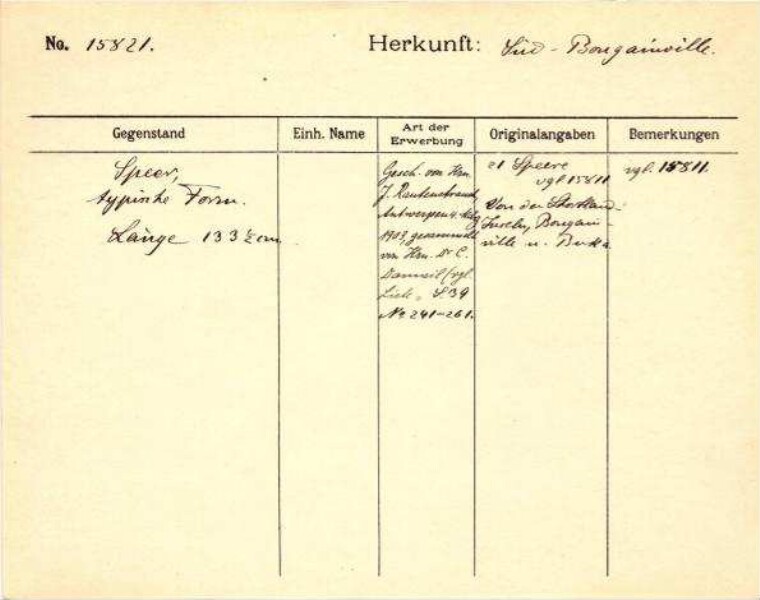 No. 15821.
Herkunft: Süd - Bougainville.
Gegenstand
Einh. Name
Art der
Erwerbung
Originalangaben
Bemerkungen
Speer,
typische Form.
Länge 133 ½ cm
Gesch. von Hrn.
J. Rautenstrauch,
Antwerpen
1909, gesammelt
von Hrn. Dr C.
(vgl.
Liste S. 39
No 241-261.
21 Speere
vgl. 15811
Von den Shortland-
Inseln, Bougain-
ville u. Buka
vgl. 15811.